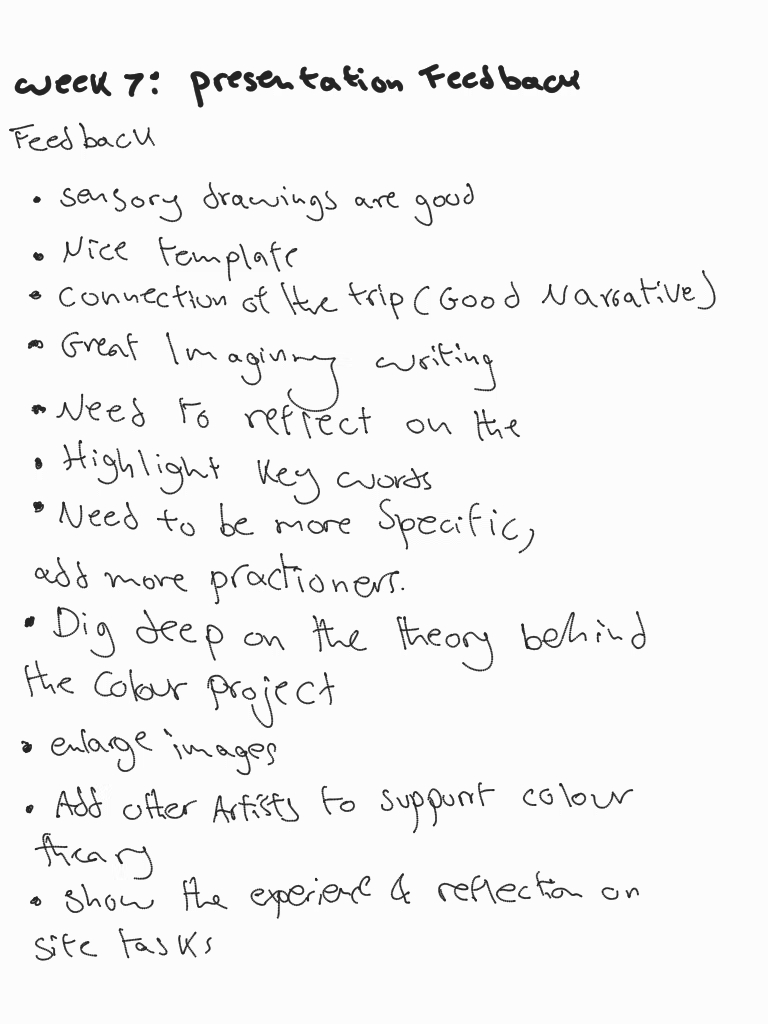 Week 7: presentation Feedback
Feedback
• sensory drawings are good
• Nice template
• Connection of the trip (Good Narrative)
• Great Imaginny writing
• Need to reflect on the
• Highlight key words
• Need to be more Specific,
add more practioners.
• Dig deep on the theory behind
the Colour project
• enlarge images
• Add other Artists to support colour
theary
• Show the experience & reflection on
site tasks